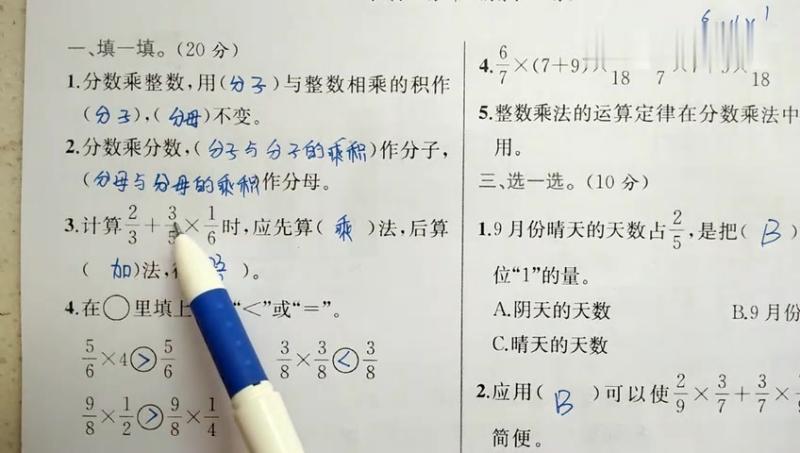 一、填一填。(20分)
1.分数乘整数,用(分子)与整数相乘的积作
(分子),(分母)不变。
2.分数乘分数,(分子与分子的乘积)作分子,
(分母与分母的乘积)作分母。
3.计算2/3+3/5×1/6时,应先算(乘)法,后算
(加)法,
)。
4.在○里填上
“<”或“=”。
5/6×4>5/6 3/8×3/8<3/8
9/8×1/2>9/8×1/4
4.6/7×(7+9)
18 7
18
5.整数乘法的运算定律在分数乘法中
用。
三、选一选。(10分)
1.9月份晴天的天数占2/5,是把(B)
位“1”的量。
A.阴天的天数 B.9月份
C.晴天的天数
2.应用(B)可以使2/9×3/7+3/7×
简便。